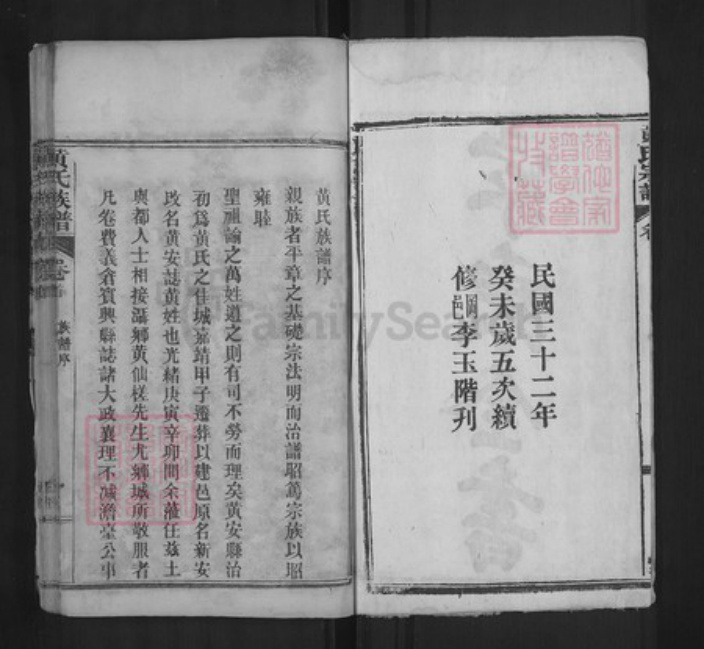 民國三十二年
癸未歲五次續
修岡邑李玉階刊
黃氏族譜序
親族者平章之基礎宗法明而治譜昭篤宗族以昭
雍睦
聖祖諭之萬姓遵之則有司不勞而理矣黃安縣治
初爲黃氏之佳城嘉靖甲子遷葬以建邑原名新安
改名黃安誌黃姓也光緒庚寅辛卯間余蒞任茲土
與都人士相接灄鄉黃仙槎先生尤鄉城所敬服者
凡卷費義倉賓興縣誌諸大政襄理不減澹臺公事
黃氏族譜
卷首
族譜序
黃氏宗譜
FamilySearch